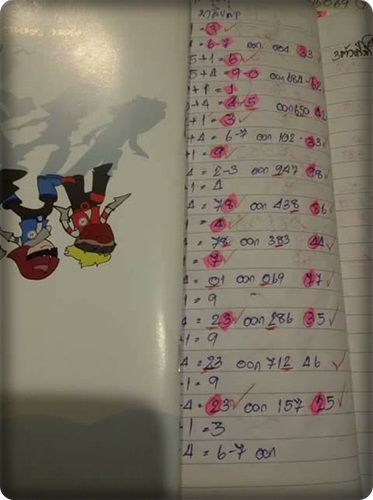 = 3
= 6-7 ออก 904 33
5+1 = 5
5+4 = 9-0 ออก 684-62
+1 = 1
+4 = 4-5 ออก 650 42
+1 = 3
+4 = 6-7 ออก 192-33
+1 = 9
4 = 2-3 ออก 947 98
-1 = 4
4 = 78 ออก 438 86
1 = 4
= 78 ออก 383 44
= 7
4 = 01 ออก 069 77
-1 = 9
4 = 23 ออก 286 35
-1 = 9
4 = 23 ออก 712 46
-1 = 9
-4 = 23 ออก 157 25
-1 = 3
4 = 6-7 ออก